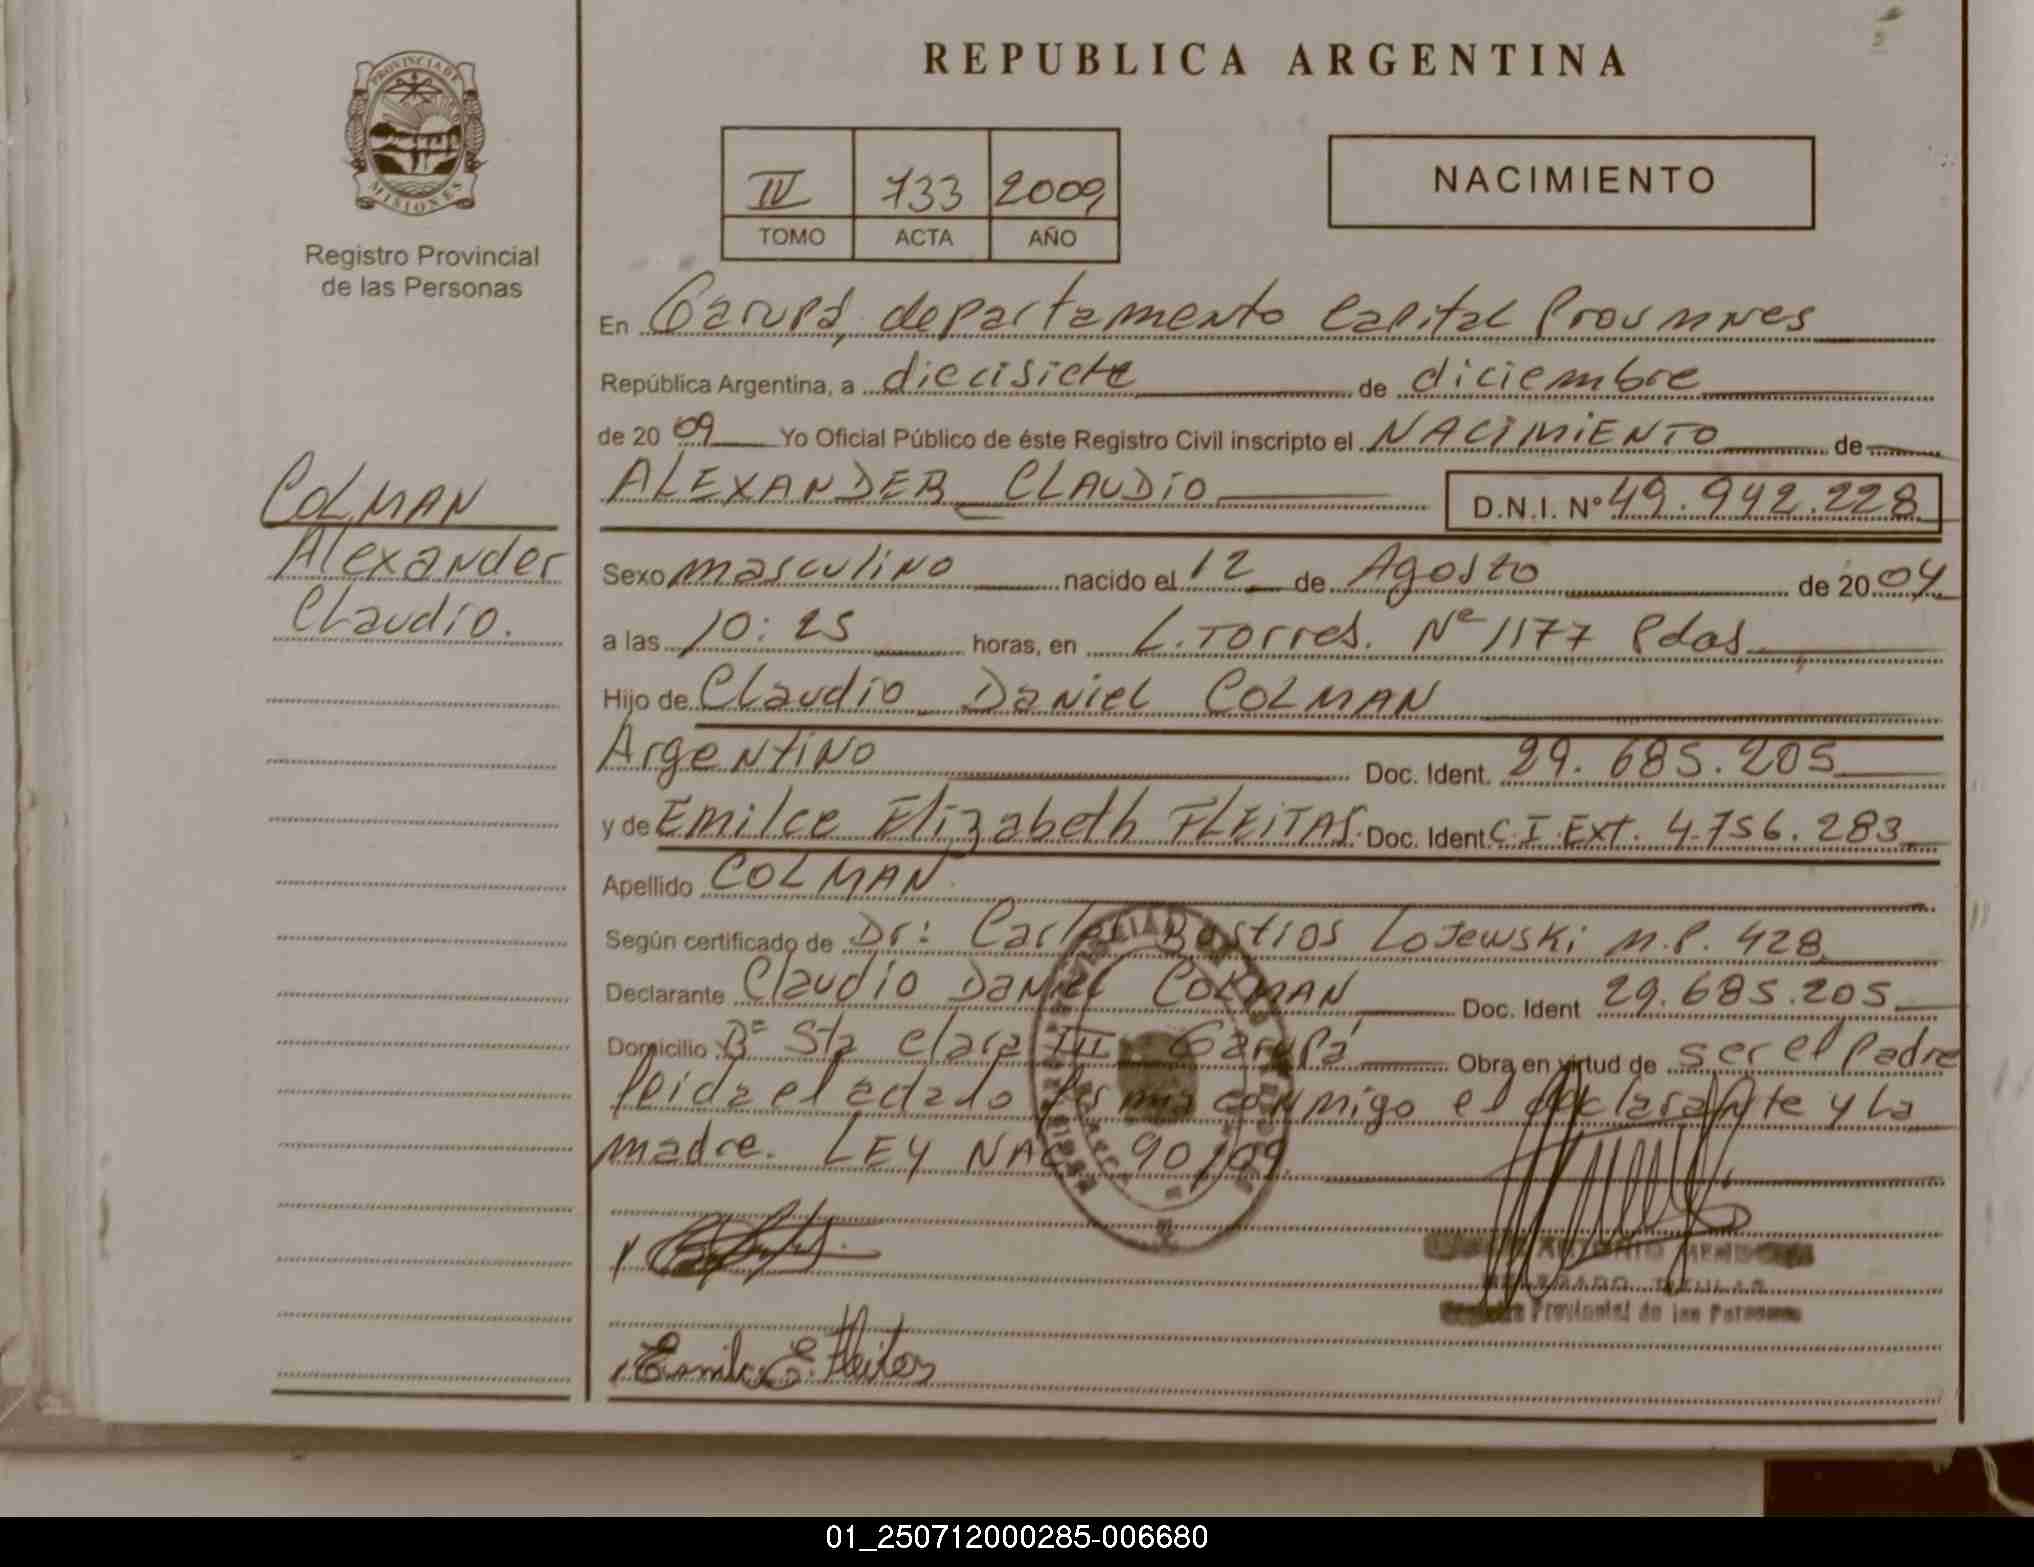 PROVINCIA DE
MISIONES
Registro Provincial
de las Personas
COLMAN
Alexander
Claudio.
REPUBLICA ARGENTINA
IV 733 2009
TOMO ACTA AÑO
NACIMIENTO
En Garupá, departamento Capital Prov mnes
República Argentina, a diecisiete de diciembre
de 2009 Yo Oficial Público de éste Registro Civil inscripto el NACIMIENTO de
ALEXANDER CLAUDIO D.N.I. Nº 49.942.228
Sexo masculino nacido el 12 de Agosto de 2004
a las 10:25 horas, en L. Torres. Nº 1177 Pdas
Hijo de Claudio Daniel COLMAN
Argentino Doc. Ident. 29.685.205
y de Emilce Elizabeth FLEITAS. Doc. Ident C.I. Ext. 4.756.283
Apellido COLMAN
Según certificado de Dr: Carlos Bustios Lojewski M.P. 428
Declarante Claudio Daniel COLMAN Doc. Ident 29.685.205
Domicilio Bº Sta clara III Garupá Obra en virtud de ser el padre
leida el acta lo firma conmigo el declarante y la
madre. LEY NAC 90/09
Emilce E. Fleitas
ANTONIO MENDOZA
DELEGADO TITULAR
Registro Provincial de las Personas
01_250712000285-006680